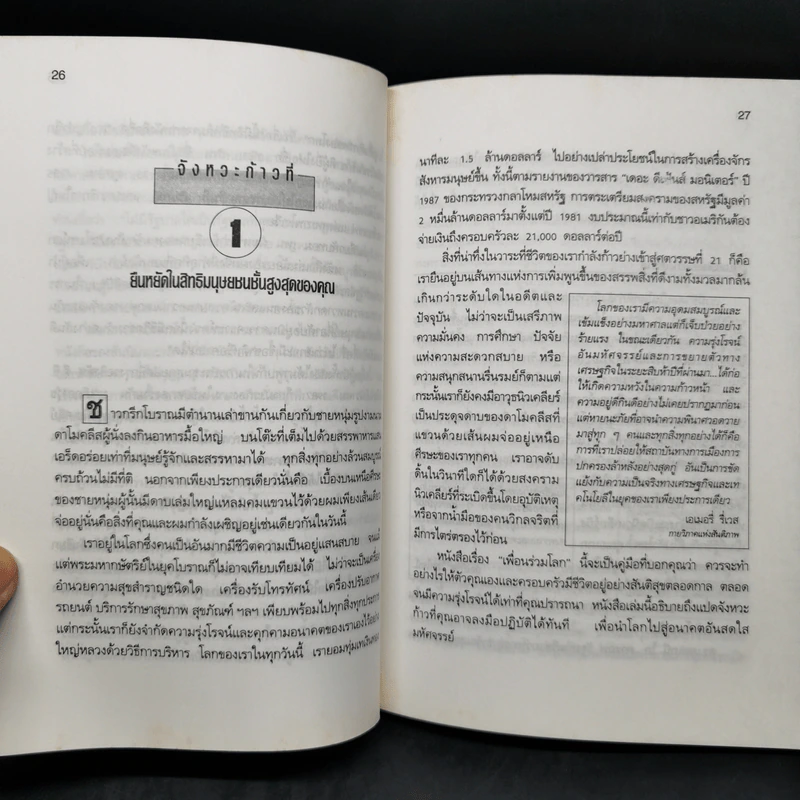 26
จังหวะก้าวที่
1
ยืนหยัดในสิทธิมนุษยชนชั้นสูงสุดของคุณ
ชาวกรีกโบราณมีตำนานเล่าขานกันเกี่ยวกับชายหนุ่มรูปงามนาม
ดาโมคลีสผู้นั่งลงกินอาหารมื้อใหญ่ บนโต๊ะที่เต็มไปด้วยสรรพาหารแสน
เอร็ดอร่อยเท่าที่มนุษย์รู้จักและสรรหามาได้ ทุกสิ่งทุกอย่างล้วนสมบูรณ์
ครบถ้วนไม่มีที่ติ นอกจากเพียงประการเดียวนั่นคือ เบื้องบนเหนือศีรษะ
ของชายหนุ่มผู้นั้นมีดาบเล่มใหญ่แหลมคมแขวนไว้ด้วยผมเพียงเส้นเดียว
จ่ออยู่นั่นคือสิ่งที่คุณและผมกำลังเผชิญอยู่เช่นเดียวกันในวันนี้
เราอยู่ในโลกซึ่งคนเป็นอันมากมีชีวิตความเป็นอยู่แสนสบาย จนแม้
แต่พระมหากษัตริย์ในยุคโบราณก็ไม่อาจเทียบเทียมได้ ไม่ว่าจะเป็นเครื่อง
อำนวยความสุขสำราญชนิดใด เครื่องรับโทรทัศน์ เครื่องปรับอากาศ
รถยนต์ บริการรักษาสุขภาพ สุขภัณฑ์ ฯลฯ เพียบพร้อมไปทุกสิ่งทุกประการ
แต่กระนั้นเราก็ยังจำกัดความรุ่งโรจน์และคุกคามอนาคตของเราเองไว้อย่าง
ใหญ่หลวงด้วยวิธีการบริหาร โลกของเราในทุกวันนี้ เรายอมทุ่มเทเงินหมด
27
นาทีละ 1.5 ล้านดอลลาร์ ไปอย่างเปล่าประโยชน์ในการสร้างเครื่องจักร
สังหารมนุษย์ขึ้น ทั้งนี้ตามรายงานของวารสาร "เดอะ ดีเฟ้นส์ มอนิเตอร์" ปี
1987 ของกระทรวงกลาโหมสหรัฐ การตระเตรียมสงครามของสหรัฐมีมูลค่า
2 หมื่นล้านดอลลาร์มาตั้งแต่ปี 1981 งบประมาณนี้เท่ากับชาวอเมริกันต้อง
จ่ายเงินถึงครอบครัวละ 21,000 ดอลลาร์ต่อปี
สิ่งที่น่าทึ่งในวาระที่ชีวิตของเรากำลังก้าวย่างเข้าสู่ศตวรรษที่ 21 ก็คือ
เรายืนอยู่บนเส้นทางแห่งการเพิ่มพูนขึ้นของสรรพสิ่งที่ดีงามทั้งมวลมากล้น
เกินกว่าระดับใดในอดีตและ
ปัจจุบัน ไม่ว่าจะเป็นเสรีภาพ
ความมั่นคง การศึกษา ปัจจัย
แห่งความสะดวกสบาย หรือ
ความสนุกสนานรื่นรมย์ก็ตามแต่
กระนั้นเราก็ยังคงมีอาวุธนิวเคลียร์
เป็นประดุจดาบของดาโมคลีสที่
แขวนด้วยเส้นผมจ่ออยู่เหนือ
ศีรษะของเราทุกคน เราอาจดับ
ดิ้นในวินาทีใดก็ได้ด้วยสงคราม
นิวเคลียร์ที่ระเบิดขึ้นโดยอุบัติเหตุ
หรือจากน้ำมือของคนวิกลจริตที่
มีการไตร่ตรองไว้ก่อน
โลกของเรามีความอุดมสมบูรณ์และ
เข้มแข็งอย่างมหาศาลแต่ก็เจ็บป่วยอย่าง
ร้ายแรง ในขณะเดียวกัน ความรุ่งโรจน์
อันมหัศจรรย์และการขยายตัวทาง
เศรษฐกิจในระยะสิบห้าปีที่ผ่านมา...ได้ก่อ
ให้เกิดความหวังในความก้าวหน้า และ
ความอยู่ดีกินดีอย่างไม่เคยปรากฏมาก่อน
แต่หายนะภัยที่อาจนำความพินาศวอดวาย
มาสู่ทุก ๆ คนและทุกสิ่งทุกอย่างได้ก็คือ
การที่เราปล่อยให้สถาบันทางการเมืองการ
ปกครองล้าหลังอย่างสุดกู่ อันเป็นการขัด
แย้งกับความเป็นจริงทางเศรษฐกิจและเท
คโนโลยีในยุคของเราเพียงประการเดียว
เอเมอรี่ รีเวส
กายวิภาคแห่งสันติภาพ
หนังสือเรื่อง "เพื่อนร่วมโลก" นี้จะเป็นคู่มือที่บอกคุณว่า ควรจะทำ
อย่างไรให้ตัวคุณเองและครอบครัวมีชีวิตอยู่อย่างสันติสุขตลอดกาล ตลอด
จนมีความรุ่งโรจน์ได้เท่าที่คุณปรารถนา หนังสือเล่มนี้อธิบายถึงแปดจังหวะ
ก้าวที่คุณอาจลงมือปฏิบัติได้ทันที เพื่อนำโลกไปสู่อนาคตอันสดใส
มหัศจรรย์